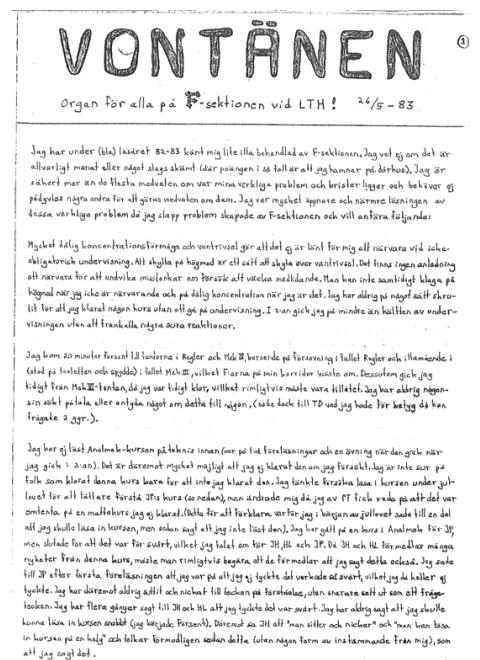 VONTÄNEN
1
Organ för alla på F-sektionen vid LTH! 26/5-83
Jag har under (bla) läsåret 82-83 känt mig lite illa behandlad av F-sektionen. Jag vet ej om det är
allvarligt menat eller något slags skämt (där poängen i så fall är att jag hamnar på dårhus). Jag är
säkert mer än de flesta medveten om var mina verkliga problem och brister ligger och behöver ej
pådyvlas några andra för att göras medveten om dem. Jag var mycket öppnare och närmre lösningen av
dessa verkliga problem då jag slapp problem skapade av F-sektionen och vill anföra följande:
Mycket dålig koncentrationsförmåga och vantrivsel gör att det ej är lönt för mig att närvara vid icke-
obligatorisk undervisning. Att skylla på högmod är ett sätt att skyla över vantrivsel. Det finns ingen anledning
att närvara för att undvika misstankar om försök att väcka medlidande. Man kan inte samtidigt klaga på
högmod när jag icke är närvarande och på dålig koncentration när jag är det. Jag har aldrig på något sätt skru-
tit för att jag klarat någon kurs utan att gå på undervisning. I 2:an gick jag på mindre än hälften av under-
visningen utan att framkalla några sura reaktioner.
Jag kom 20 minuter för sent till tentorna i Regler och Mek III, beroende på försovning i fallet Regler och illamående i
(stod på toaletten och spydde) i fallet Mek III, vilket flarna på min korridor visste om. Dessutom gick jag
tidigt från Mek III-tentan, då jag var tidigt klar, vilket rimligtvis måste vara tillåtet. Jag har aldrig någon-
sin sökt påtala eller antyda något om detta till någon, (sade dock till TD ved jag hade för betyg då han
frågade 2 ggr.).
Jag har ej läst Analmek-kursen på teknis innan (var på två föreläsningar och en övning när den gick när
jag gick i 2:an). Det är däremot mycket möjligt att jag ej klarat den om jag försökt. Jag är inte sur på
folk som klarat denna kurs bara för att inte jag klarat den. Jag tänkte försöka läsa i kursen under jul-
lovet för att lättare förstå JP:s kurs (se nedan), men ändrade mig då jag av PT fick veda på att det var
omtenta på en mattekurs jag ej klarat. (Detta för att förklara varför jag i början av jullovet sade till en del
att jag skulle läsa in kursen, men sedan sagt att jag inte läst den). Jag har gått på en kurs i Analmek för JP,
men slutade för att det var för svårt, vilket jag talat om för JH, HL och JP. Då JH och HL förmedlar många
nyheter från denna kurs, måste man rimligtvis begära att de förmedlar att jag sagt detta också. Jag sade
till JP efter första föreläsningen att jag var på att jag ej tyckte det verkade så svårt, vilket jag då heller ej
tyckte. Jag har däremot aldrig suttit och nickat till tecken på förståelse, utan snarare sett ut som ett fråge-
tecken. Jag har flera gånger sagt till JH och HL att jag tyckte det var svårt. Jag har aldrig sagt att jag skulle
kunna läsa in kursen snabbt (jag började för sent). Däremot sa JH att "man sitter och nickar" och "man kan läsa
in kursen på en helg" och tolkar förmodligen sedan detta (utan någon form av instämmande från mig), som
att jag sagt det.